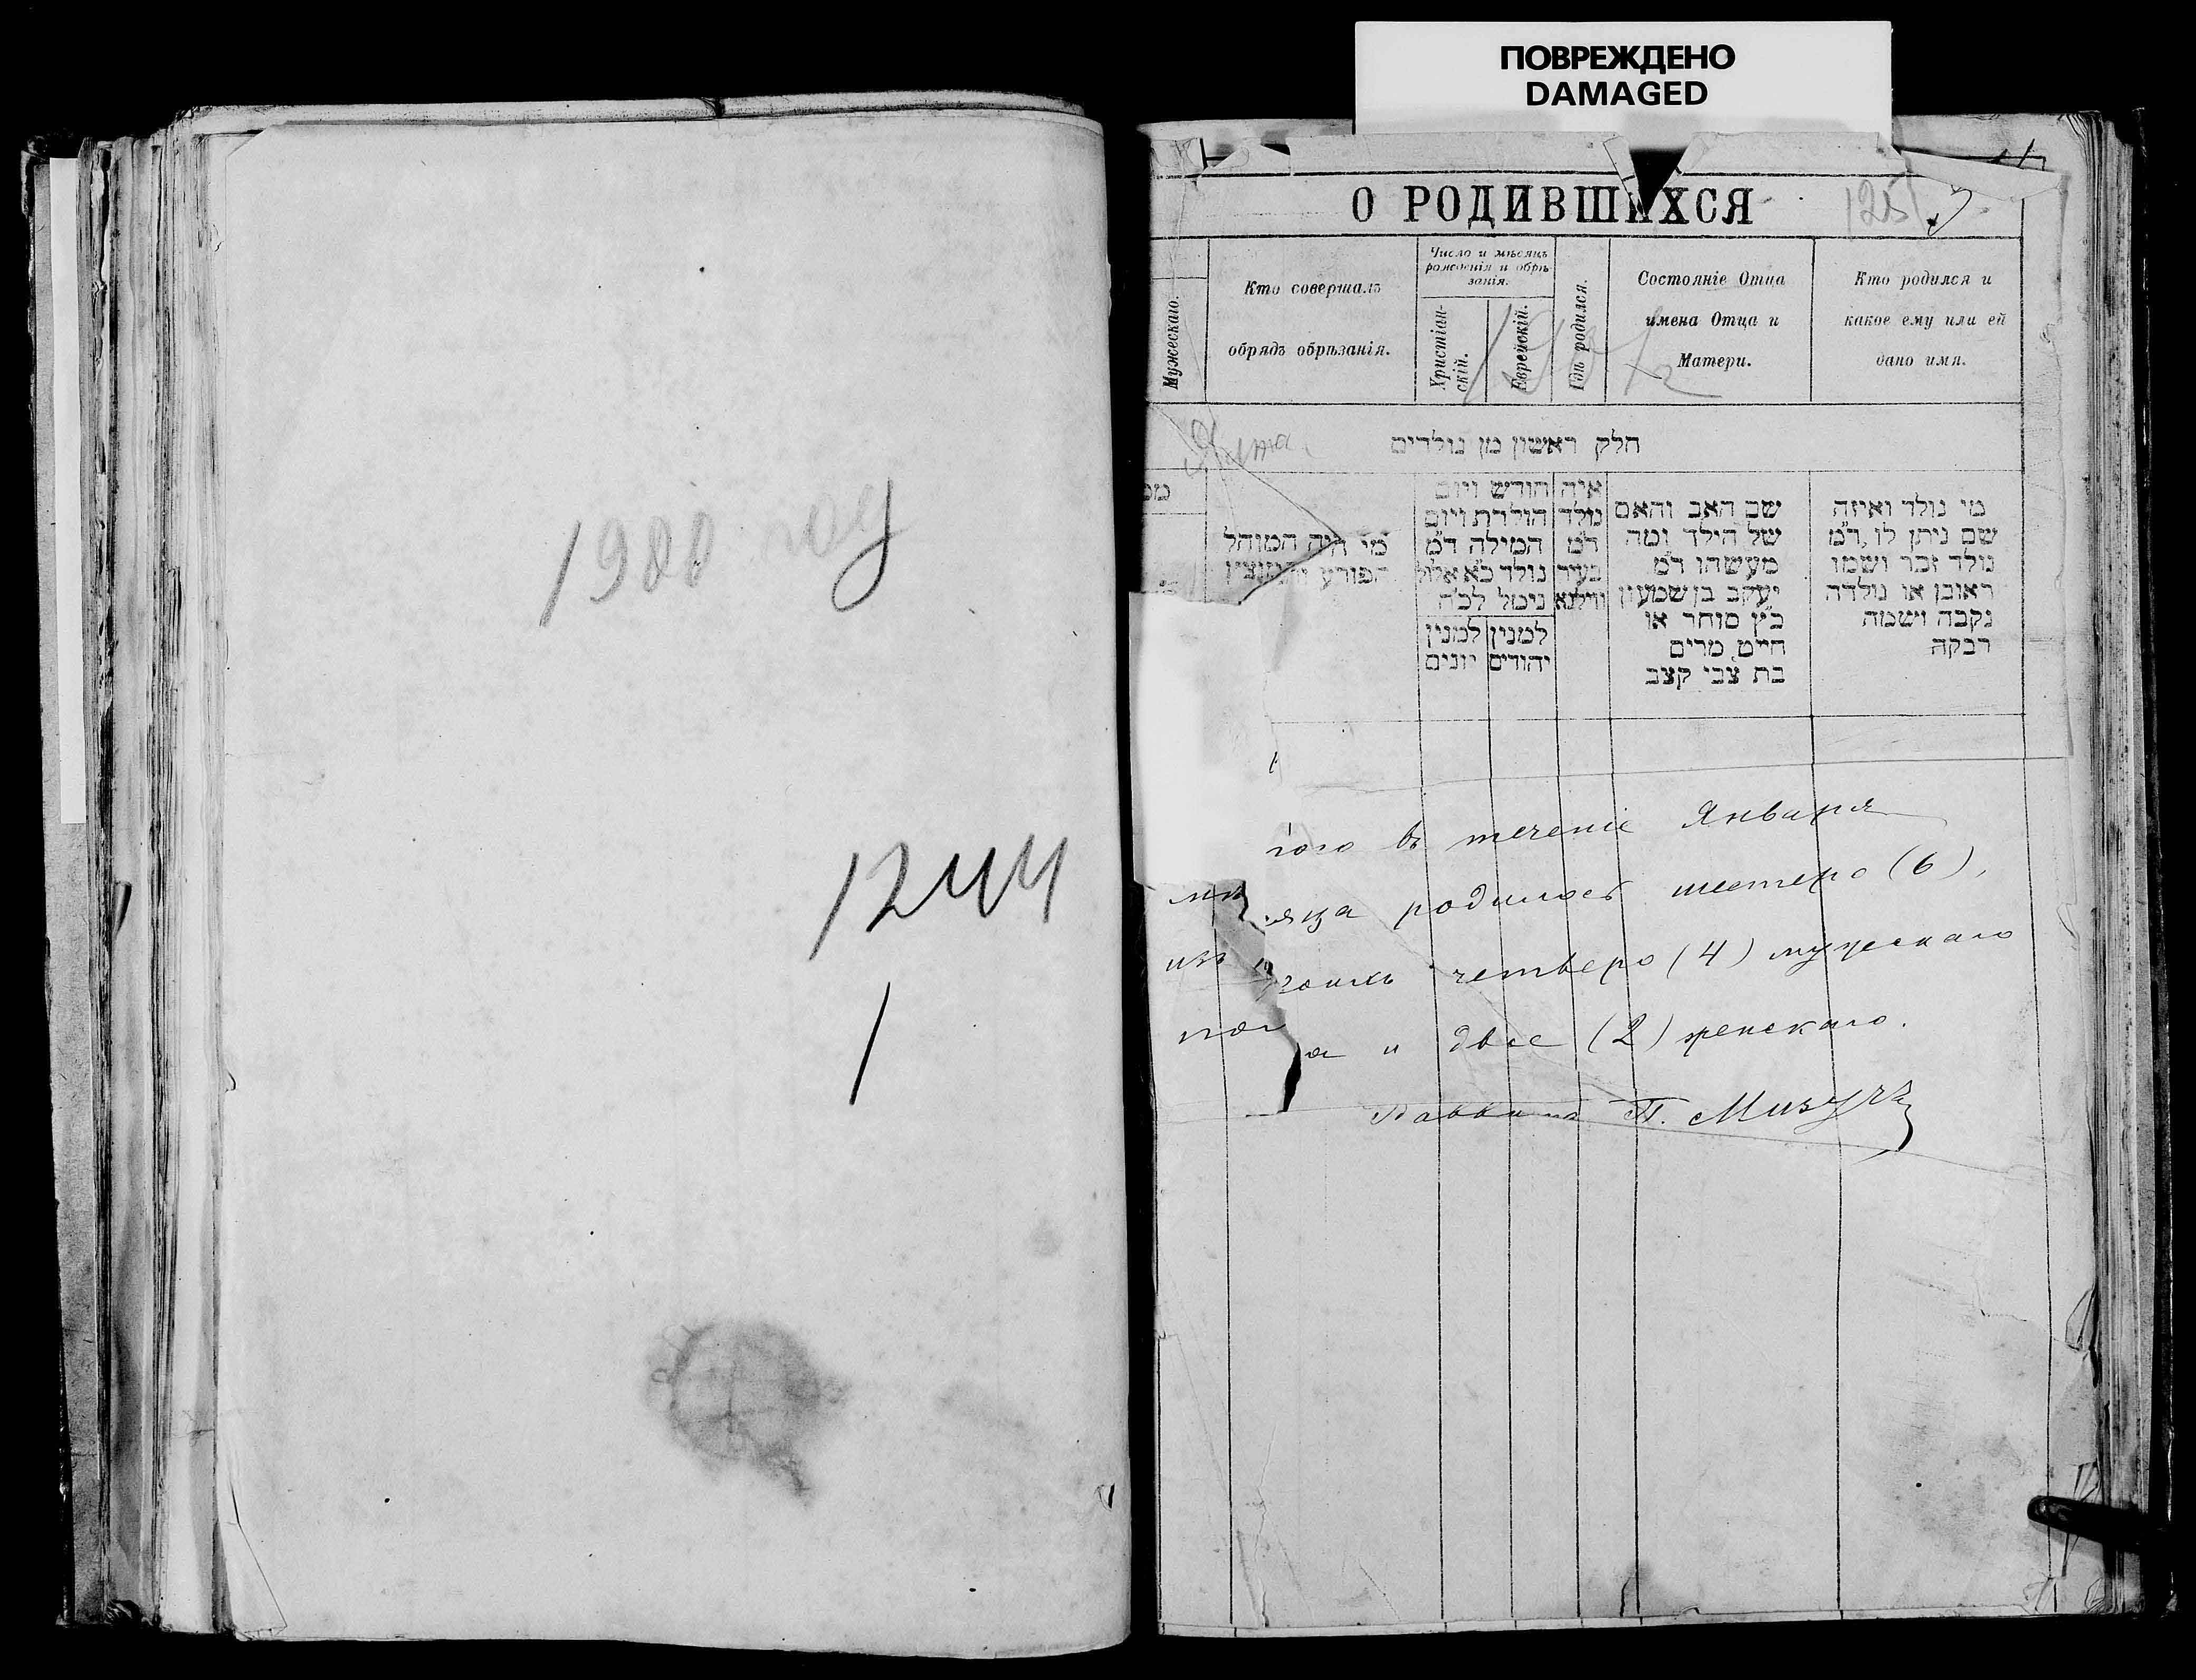 1900 году
1244
1
ПОВРЕЖДЕНО
DAMAGED
О РОДИВШИХСЯ
125
Мужескаго.
Кто совершалъ
обрядъ обрѣзанія.
Число и мѣсяцъ
рожденія и обрѣ-
занія.
Христіан-
скій.
Еврейскій.
Гдѣ родился.
Состояніе Отца
имена Отца и
Матери.
Кто родился и
какое ему или ей
дано имя.
חלק ראשון מן נולדים
מי היה המוהל
הפורע והמוצץ
חודש ויום
הולדת ויום
המילה ד״מ
נולד כ״א אלול
נימול לכ״ה
למנין יהודים
למנין יונים
איה
נולד
ד״מ
בעיר
ווילנא
שם האב והאם
של הילד ומה
מעשהו ד״מ
יעקב בן שמעון
כ״ץ סוחר או
חייט מרים
בת צבי קצב
מי נולד ואיזה
שם ניתן לו ד״מ
נולד זכר ושמו
ראובן או נולדה
נקבה ושמה
רבקה
того въ теченіе Января
мѣсяца родилось шестеро (6),
изъ коихъ четверо (4) мужескаго
пола и двое (2) женскаго.
Раввинъ П.